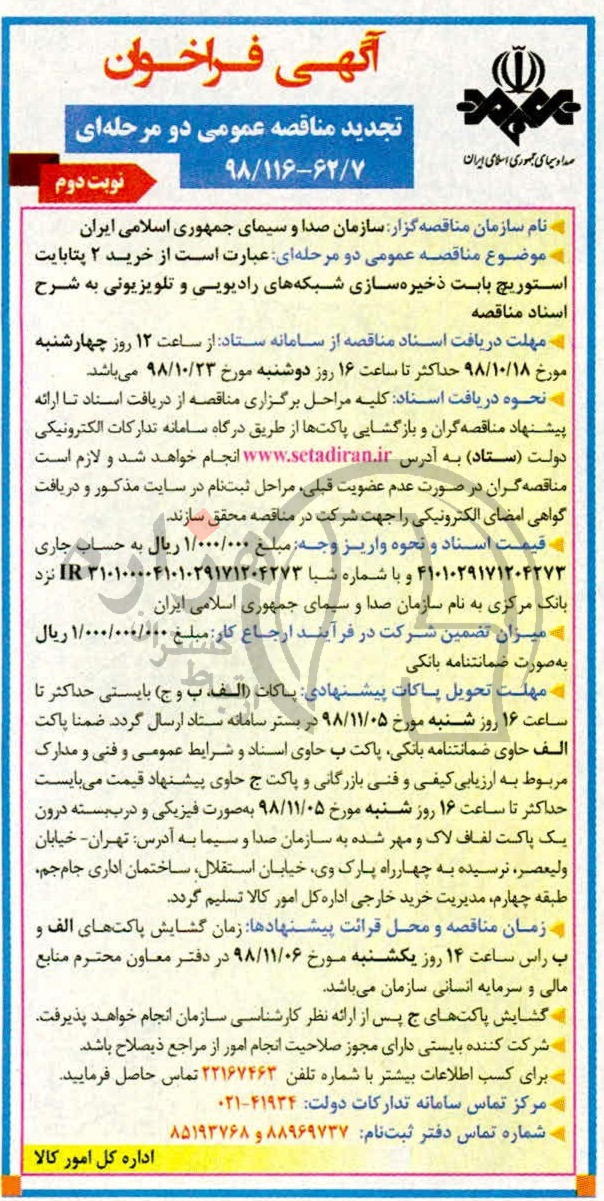 آگهی فراخوان
صدا و سیمای جمهوری اسلامی ایران
تجدید مناقصه عمومی دو مرحله‌ای
۹۸/۱۱۶-۶۲/۷
نوبت دوم
نام سازمان مناقصه‌گزار: سازمان صدا و سیمای جمهوری اسلامی ایران
موضوع مناقصه عمومی دو مرحله‌ای: عبارت است از خرید ۲ پتابایت
استوریج بابت ذخیره‌سازی شبکه‌های رادیویی و تلویزیونی به شرح
اسناد مناقصه
مهلت دریافت اسناد مناقصه از سامانه ستاد: از ساعت ۱۲ روز چهارشنبه
مورخ ۹۸/۱۰/۱۸ حداکثر تا ساعت ۱۶ روز دوشنبه مورخ ۹۸/۱۰/۲۳ می‌باشد.
نحوه دریافت اسناد: کلیه مراحل برگزاری مناقصه از دریافت اسناد تا ارائه
پیشنهاد مناقصه‌گران و بازگشایی پاکت‌ها از طریق درگاه سامانه تدارکات الکترونیکی
دولت (ستاد) به آدرس www.setadiran.ir انجام خواهد شد و لازم است
مناقصه‌گران در صورت عدم عضویت قبلی، مراحل ثبت‌نام در سایت مذکور و دریافت
گواهی امضای الکترونیکی را جهت شرکت در مناقصه محقق سازند.
قیمت اسناد و نحوه واریز وجه: مبلغ ۱/۰۰۰/۰۰۰ ریال به حساب جاری
۴۱۰۱۰۲۹۱۷۱۲۰۴۲۷۳ و با شماره شبا IR ۳۱۰۱۰۰۰۰۴۱۰۱۰۲۹۱۷۱۲۰۴۲۷۳ نزد
بانک مرکزی به نام سازمان صدا و سیمای جمهوری اسلامی ایران
میزان تضمین شرکت در فرآیند ارجاع کار: مبلغ ۱/۰۰۰/۰۰۰/۰۰۰ ریال
به‌صورت ضمانتنامه بانکی
مهلت تحویل پاکات پیشنهادی: پاکات (الف، ب و ج) بایستی حداکثر تا
ساعت ۱۶ روز شنبه مورخ ۹۸/۱۱/۰۵ در بستر سامانه ستاد ارسال گردد. ضمنا پاکت
الف حاوی ضمانتنامه بانکی، پاکت ب حاوی اسناد و شرایط عمومی و فنی و مدارک
مربوط به ارزیابی کیفی و فنی بازرگانی و پاکت ج حاوی پیشنهاد قیمت می‌بایست
حداکثر تا ساعت ۱۶ روز شنبه مورخ ۹۸/۱۱/۰۵ به‌صورت فیزیکی و درب‌بسته درون
یک پاکت لفاف لاک و مهر شده به سازمان صدا و سیما به آدرس: تهران- خیابان
ولیعصر، نرسیده به چهارراه پارک وی، خیابان استقلال، ساختمان اداری جام‌جم،
طبقه چهارم، مدیریت خرید خارجی اداره‌کل امور کالا تسلیم گردد.
زمان مناقصه و محل قرائت پیشنهادها: زمان گشایش پاکت‌های الف و
ب راس ساعت ۱۴ روز یکشنبه مورخ ۹۸/۱۱/۰۶ در دفتر معاون محترم منابع
مالی و سرمایه انسانی سازمان می‌باشد.
گشایش پاکت‌های ج پس از ارائه نظر کارشناسی سازمان انجام خواهد پذیرفت.
شرکت کننده بایستی دارای مجوز صلاحیت انجام امور از مراجع ذیصلاح باشد.
برای کسب اطلاعات بیشتر با شماره تلفن ۲۲۱۶۷۴۶۳ تماس حاصل فرمایید.
مرکز تماس سامانه تدارکات دولت: ۴۱۹۳۴-۰۲۱
شماره تماس دفتر ثبت‌نام: ۸۸۹۶۹۷۳۷ و ۸۵۱۹۳۷۶۸
اداره کل امور کالا